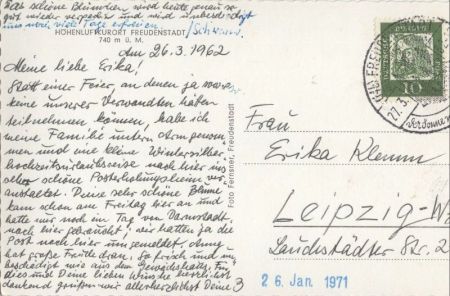 Das schöne Blümchen wird heute genau so
gut wieder verpackt und wird unbeschädigt
uns noch viele Tage erfreuen.
HÖHENLUFTKURORT FREUDENSTADT
740 m ü. M.
Am 26.3.1962
Meine liebe Erika!
Statt einer Feier, an denen ja
keine unserer Verwandten hätten
teilnehmen können, habe ich
meine Familie untern Arm genom
men und eine kleine Wintersilber-
hochzeitsurlaubsreise nach hier ins
schöne Posterholungsheim ver-
anstaltet. Deine sehr schöne Blume
kam schon am Freitag hier an und
hatte nur noch im Tag von Darmstadt
nach hier gebraucht; wir hatten ja die
Post nach hier umgemeldet. Anny
hat große Freude dran. So frisch und un-
beschädigt wie aus dem Gewächshaus. Für
dies und Deine lieben Wünsche herzlichst
dankend grüßen wir allerherzlichst Deine 3
Foto Fernsner, Freudenstadt
10
27.3.
Frau
Erika Klemm
Leipzig-W
Lauchstädter Str. 2
26. Jan. 1971